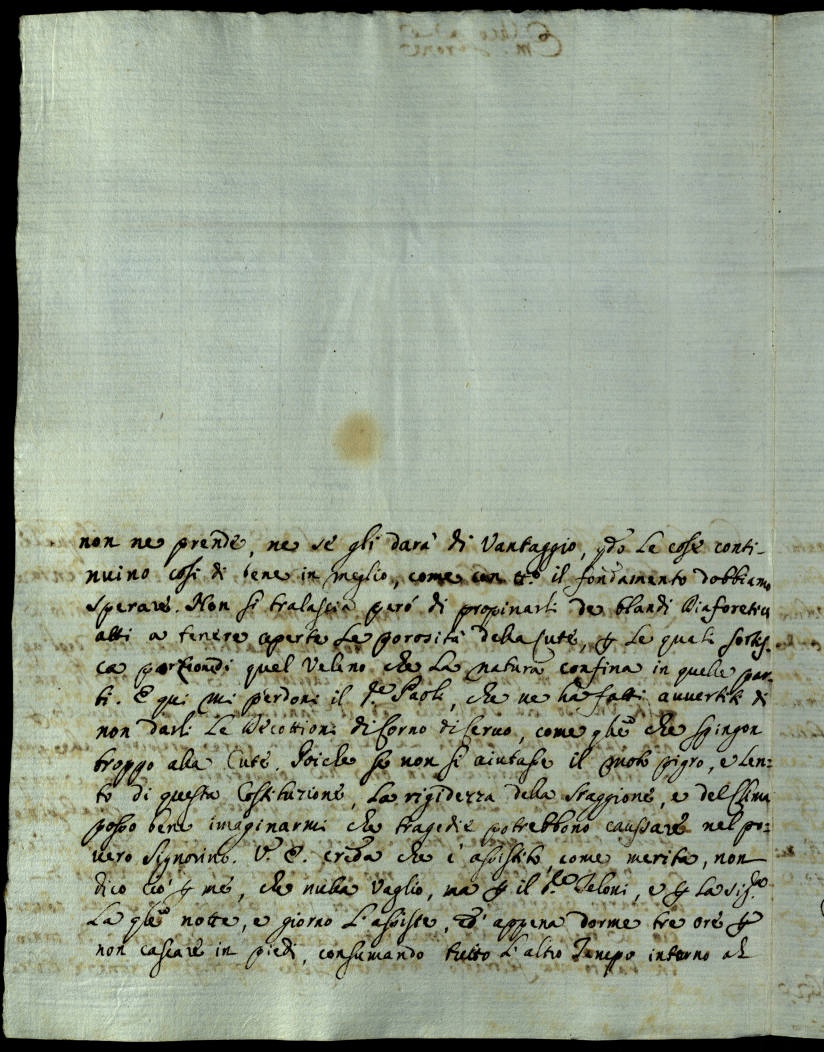 non ne prende, ne se gli darà di Vantaggio, qdo le cose conti-
nuino cosi di bene in meglio, come con tto il fondamento dobbiamo
sperare. Non si tralascia però di propinarli de blandi Diaforetici
atti a tenere aperte le porosità della Cute, p le quali sortis-
ca porzion di quel Veleno che la natura confina in quelle par-
ti. E qui mi perdoni il Paoli, che ne ha fatti avvertiti di
non darli le Decottioni di Corno di Cervo, come qlle che spingon
troppo alla Cute. Poiche se non si aiutasse il moto pigro, e len=
to di questa Costituzione, la rigidezza della Staggione, e del Clima
posso bene imaginarmi che tragedie potrebbono caussare nel po=
vero Signorino. V. E. creda che è assistito, come merita, non
dico ciò p me, che nulla vaglio, ma p il Teloni, e p la
La qle notte, e giorno l'assiste, ed appena dorme tre ore p
non cascare in piedi, consumando tutto l'altro Tempo intorno al